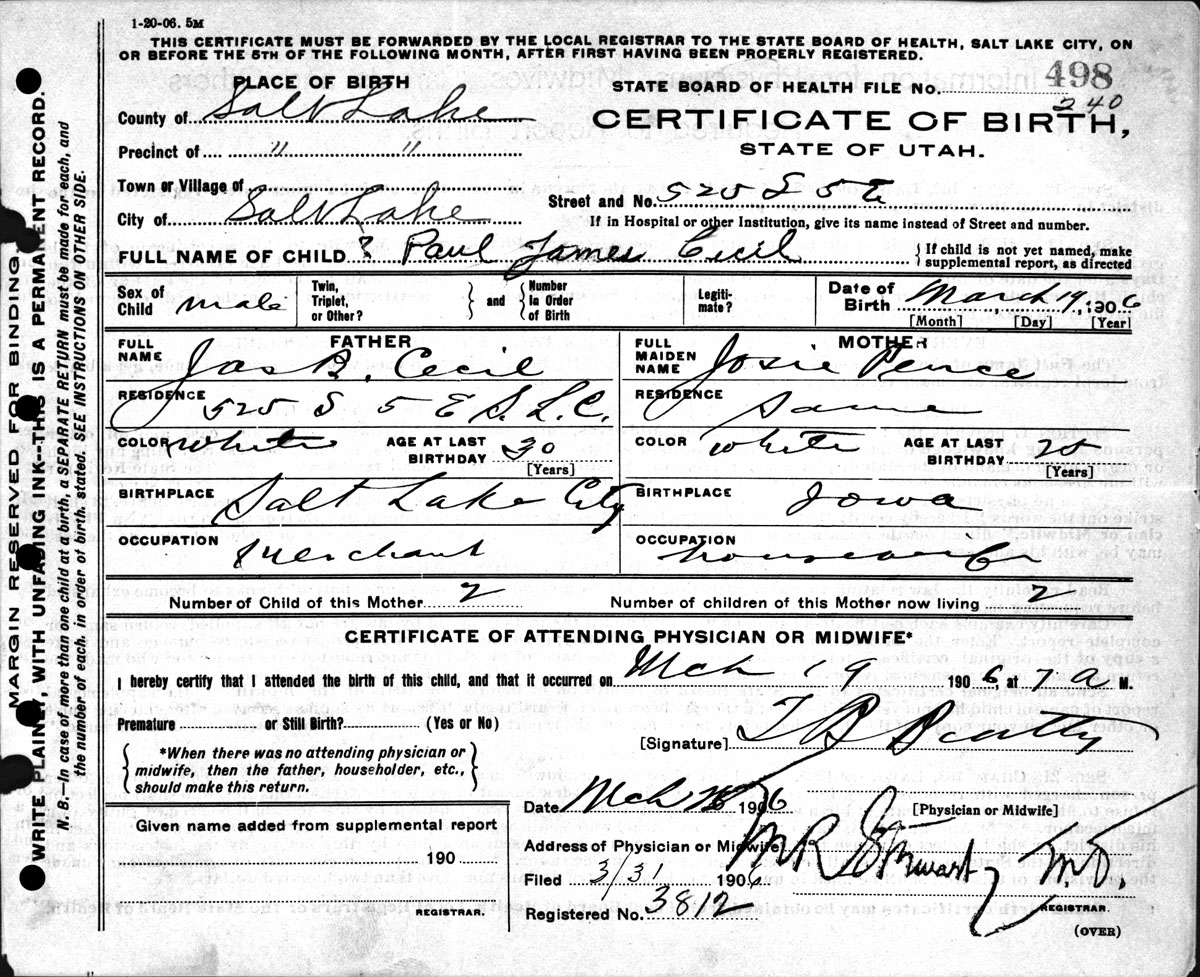 1-20-06. 5M
THIS CERTIFICATE MUST BE FORWARDED BY THE LOCAL REGISTRAR TO THE STATE BOARD OF HEALTH, SALT LAKE CITY, ON
OR BEFORE THE 5TH OF THE FOLLOWING MONTH, AFTER FIRST HAVING BEEN PROPERLY REGISTERED.
PLACE OF BIRTH
STATE BOARD OF HEALTH FILE No. 498
240
County of Salt Lake
CERTIFICATE OF BIRTH,
Precinct of " "
STATE OF UTAH.
Town or Village of
Street and No. 525 S 5 E
City of Salt Lake
If in Hospital or other Institution, give its name instead of Street and number.
FULL NAME OF CHILD ? Paul James Cecil
{If child is not yet named, make
supplemental report, as directed
Sex of Child male
Twin, Triplet, or Other? } and { Number in Order of Birth
Legiti-mate?
Date of Birth March 19, 1906
[Month] [Day] [Year]
FATHER
MOTHER
FULL NAME Jas B. Cecil
FULL MAIDEN NAME Josie Pence
RESIDENCE 525 S 5 E S.L.C.
RESIDENCE Same
COLOR White AGE AT LAST BIRTHDAY 30 [Years]
COLOR White AGE AT LAST BIRTHDAY [Years]
BIRTHPLACE Salt Lake City
BIRTHPLACE Iowa
OCCUPATION Merchant
OCCUPATION housewife
Number of Child of this Mother 2
Number of children of this Mother now living 2
CERTIFICATE OF ATTENDING PHYSICIAN OR MIDWIFE*
I hereby certify that I attended the birth of this child, and that it occurred on Mch 19 1906 at 7 a M.
Premature or Still Birth? (Yes or No)
[Signature] T B Beatty
{*When there was no attending physician or
midwife, then the father, householder, etc.,
should make this return.}
Date Mch 1906
[Physician or Midwife]
Given name added from supplemental report
190
REGISTRAR.
Address of Physician or Midwife
Filed 3/31 1906 M R Stewart M.D.
REGISTRAR.
Registered No. 3812
(OVER)
MARGIN RESERVED FOR BINDING
WRITE PLAINLY, WITH UNFADING INK--THIS IS A PERMANENT RECORD.
N. B.—In case of more than one child at a birth, a SEPARATE RETURN must be made for each, and
the number of each, in order of birth, stated. SEE INSTRUCTIONS ON OTHER SIDE.